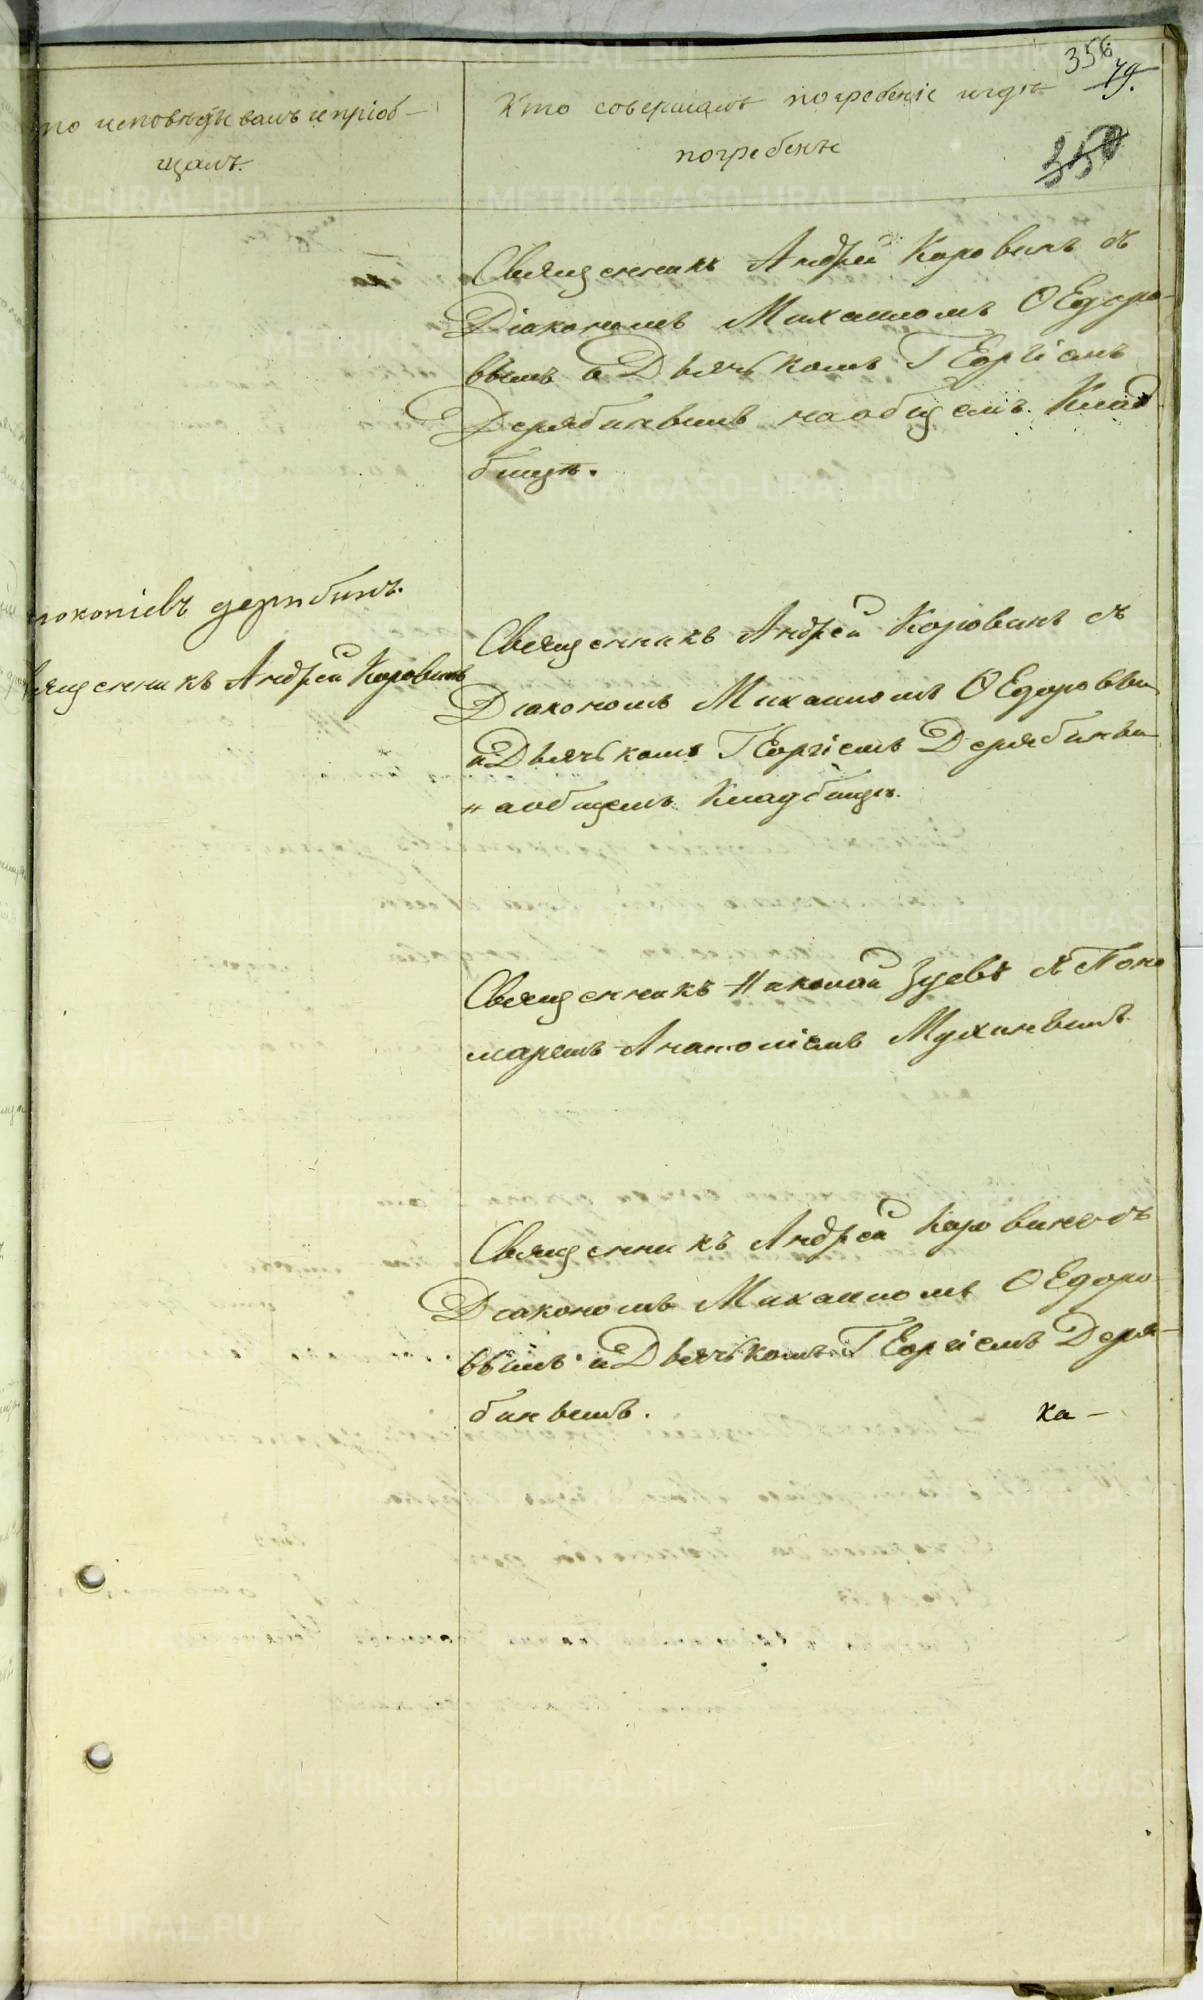 356
79.
350
то исповѣдывалъ и пріоб-
щалъ.
Кто совершалъ погребеніе и гдѣ
погребенъ
Священникъ Андрей Коровинъ съ
Діакономъ Михаиломъ Ѳедоро-
вымъ и Дьячькомъ Георгіемъ
Дерябинымъ на общемъ Клад
бищѣ.
рокопіевъ Дерябинъ.
вященникъ Андрей Коровинъ
Священникъ Андрей Коровинъ съ
Діакономъ Михаиломъ Ѳедоровы
и Дьячькомъ Георгіемъ Дерябинвы
на общемъ Кладбищѣ.
Священникъ Николай Зуевъ съ Поно
маремъ Анатоліемъ Мухинвымъ.
Священникъ Андрей Коровинъ съ
Діакономъ Михаиломъ Ѳедоро
вымъ и Дьячькомъ Георгіемъ Деря-
бинвымъ.
ка-
METRIKI.GASO-URAL.RU